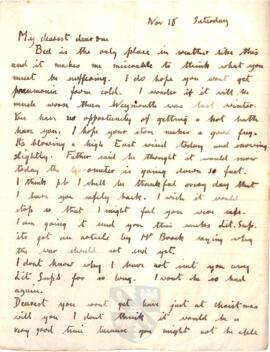 Nov 18 Saturday
My dearest dear one
Bed is the only place in weather like this
and it makes me miserable to think what you
must be suffering. I do hope you wont get
pneumonia from cold. I wonder if it will be
much worse than Weymouth was last winter.
You have no opportunity of getting a hot bath
have you. I hope your stove makes a good fug.
Its blowing a high East wind today and snowing
slightly. Father said he thought it would snow
today the barometer is going down so fast.
I think pb I shall be thankful every day that
I have you safely back. I wish it would
stop so that I might feel you were safe.
I am going to send you this weeks Lit. Sup.
its got an article by Mr Brock saying why
the war should not end yet.
I dont know why I have not sent you any
Lit Sups for so long. I wont be so bad
again.
Dearest you wont get leave just at Christmas
will you I dont think it would be a
very good time because you might not be able